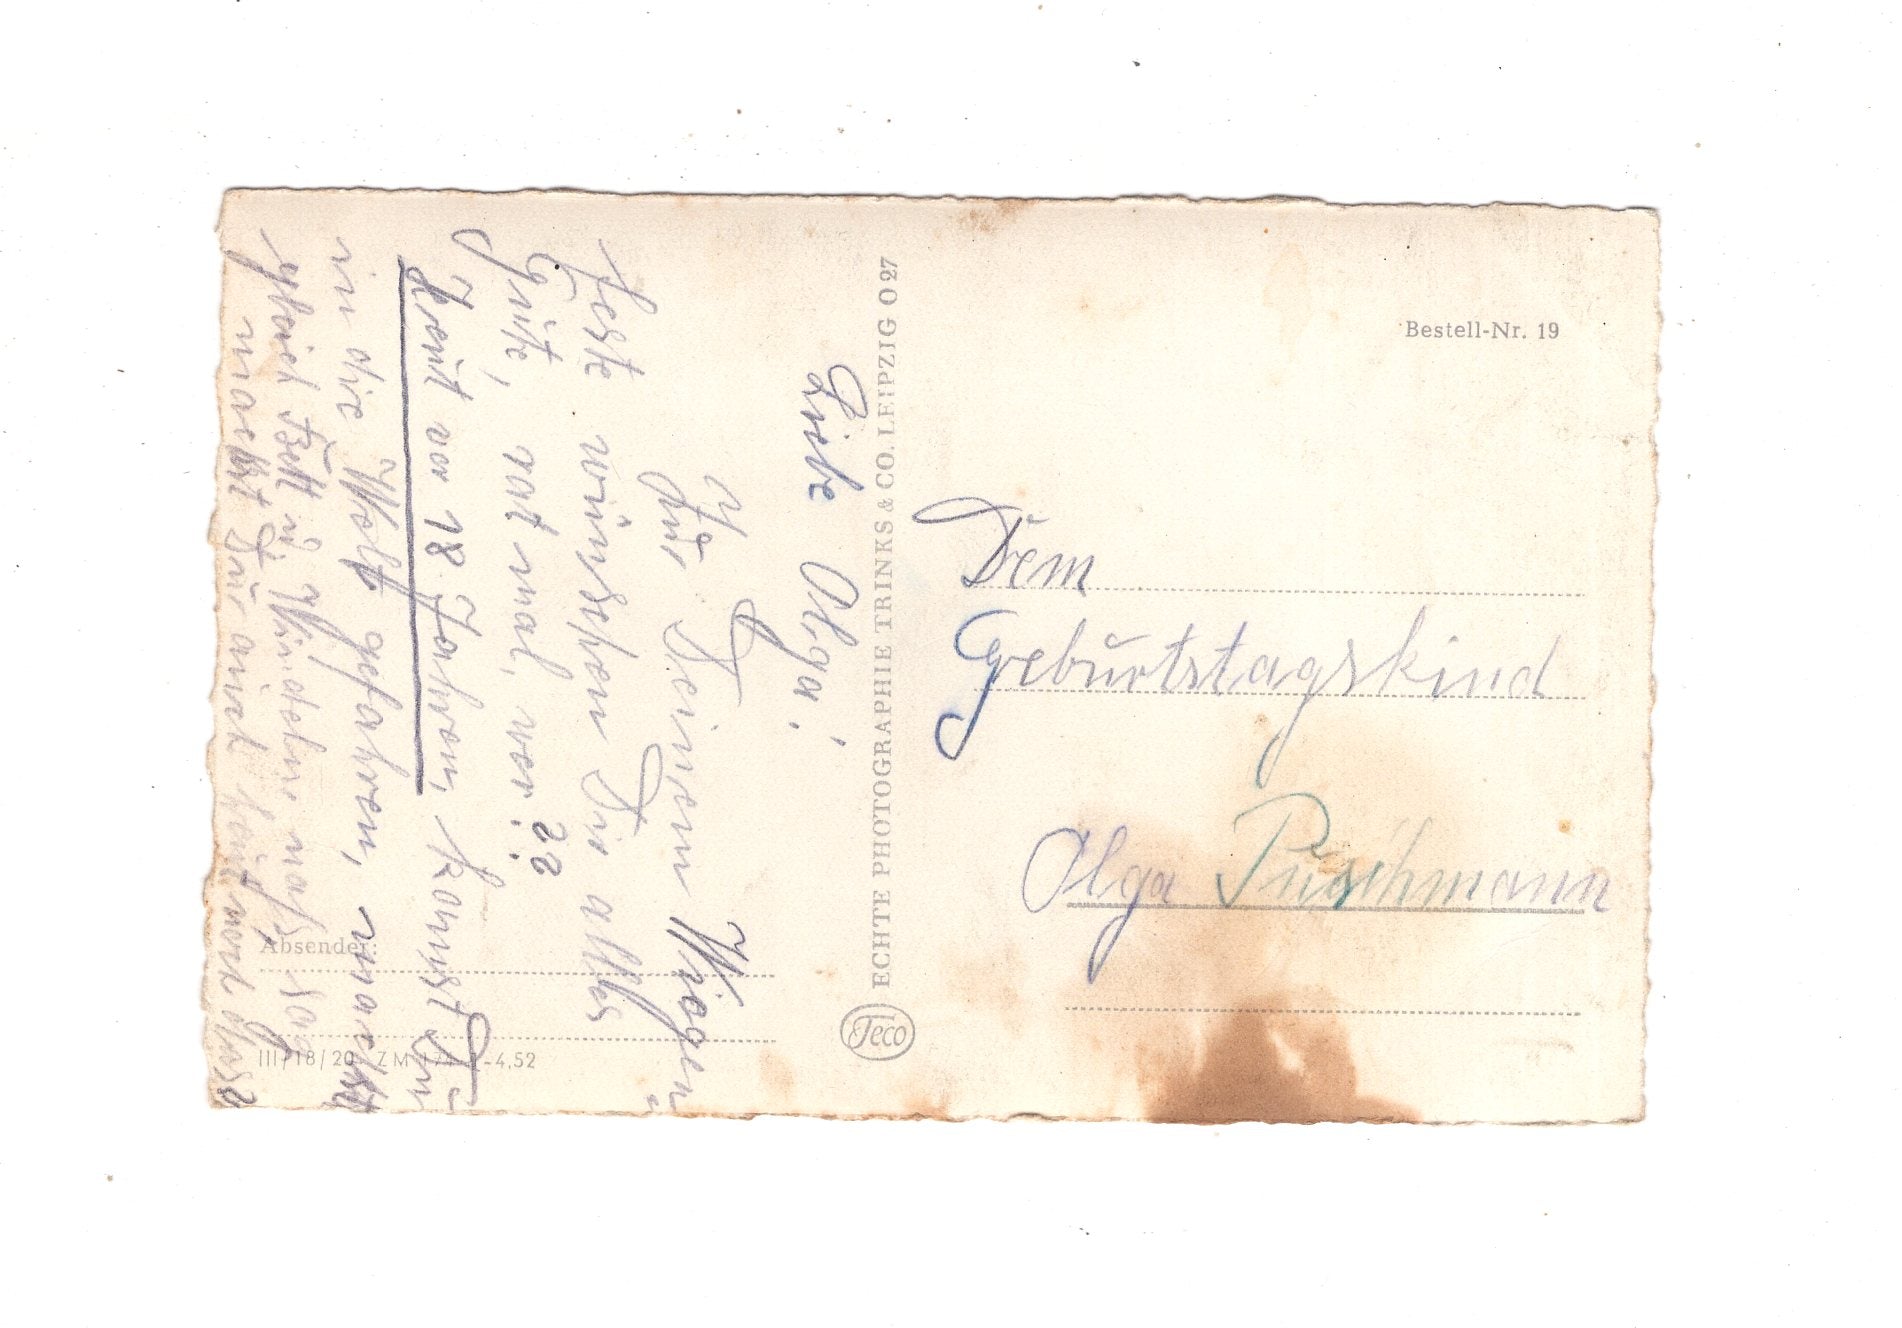 Liebe Olga!
Zu Deinem Wiegen-
feste wünschen Dir alles
Gute, rat mal, wer??
Heut vor 18 Jahren, kamst Du
in die Welt gefahren, machst
gleich Bett u. Windeln naß, so
machst Du's auch heut, noch
Absender:
III/18/20 4,52
ECHTE PHOTOGRAPHIE TRINKS & CO. LEIPZIG O 27
Teco
Bestell-Nr. 19
Dem
Geburtstagskind
Olga Puschmann